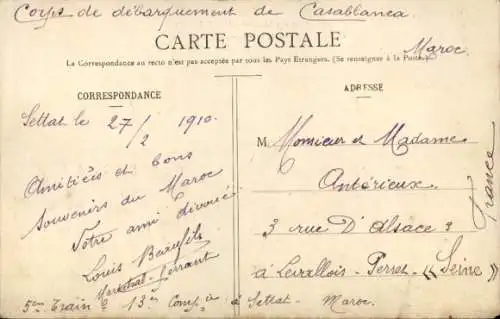 Corps de débarquement de Casablanca
Maroc.
CARTE POSTALE
La Correspondance au recto n'est pas acceptée par tous les Pays Etrangers. (Se renseigner à la Poste)
CORRESPONDANCE
ADRESSE
Settat le 27/2 1910
Amitiés et bons
souvenirs du Maroc
Votre ami dévoué
Louis Beaufils
Maréchal-ferrant
5em Train 13em Comp ie à Settat - Maroc.
M. Monsieur et Madame
Antérieux
3 rue D'Alsace 3
à Levallois-Perret (Seine)
France